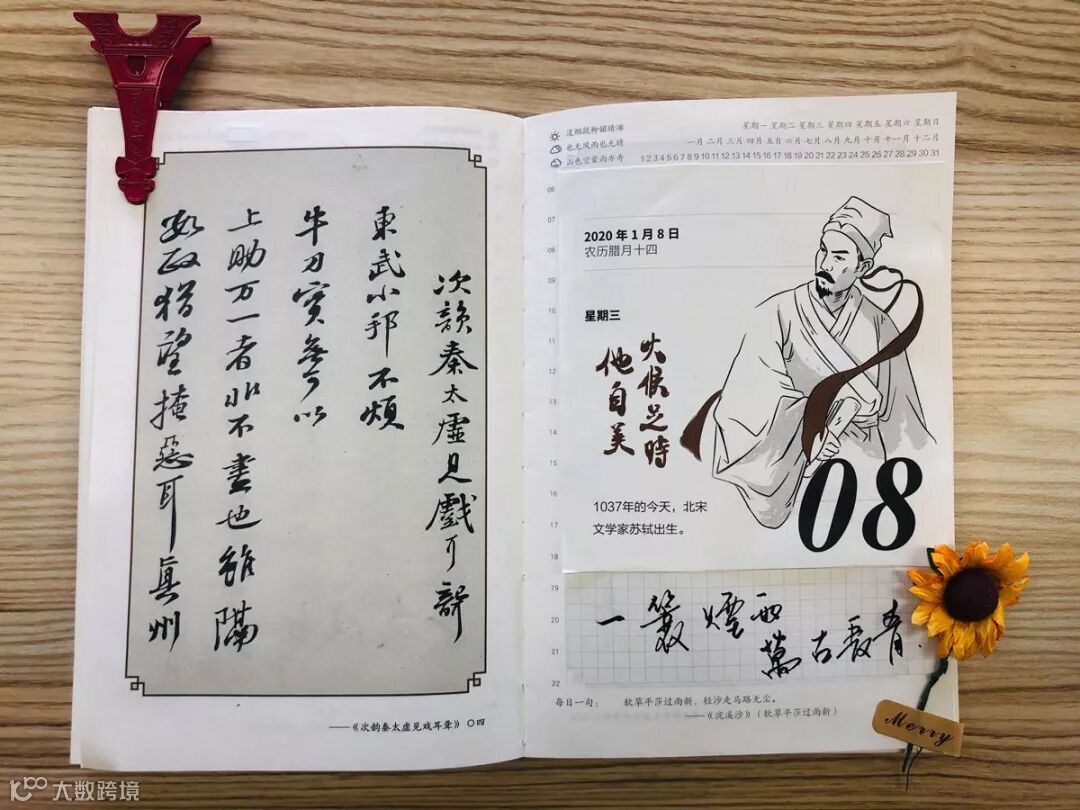 次韻秦太虛見戲耳聾
東武小邦不煩
牛刀實無可以
上助万一者非不盡也雖隔
數政猶望掩惡耳真州
——《次韵秦太虚见戏耳聋》〇四
淡烟疏柳媚晴滩
也无风雨也无晴
山色空蒙雨亦奇
星期一 星期二 星期三 星期四 星期五 星期六 星期日
一月 二月 三月 四月 五月 六月 七月 八月 九月 十月 十一月 十二月
1 2 3 4 5 6 7 8 9 10 11 12 13 14 15 16 17 18 19 20 21 22 23 24 25 26 27 28 29 30 31
06
07
08
09
10
11
12
13
14
15
16
17
18
19
20
21
22
2020 年 1 月 8 日
农历腊月十四
星期三
火候足時
他自美
1037年的今天，北宋
文学家苏轼出生。
08
一蓑煙雨
萬古青
每日一句： 软草平莎过雨新，轻沙走马路无尘。
——《浣溪沙》（软草平莎过雨新）
Merry
大数跨境